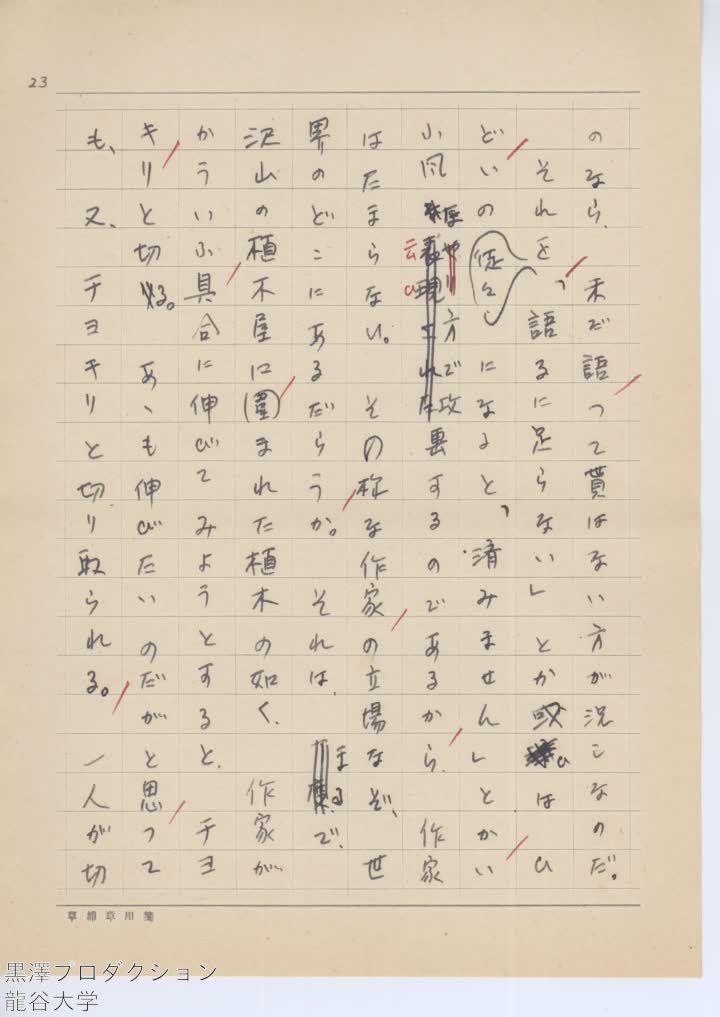 23
のなら、未だ語つて貰はない方が況こなのだ。
それを、語るに足らない」とか或ひはひ
どいの徒々になると、済みません」とかい
小風な云ひ方で攻裏するのであるから、作家
はたまらない。その様な作家の立場なぞ、世
界のどこにあるだらうか。それは、まるで、
沢山の植木屋に囲まれた植木の如く、作家が
かういふ具合に伸びてみようとすると、チヨ
キリと切る。あゝも伸びたいのだがと思つて
も、又、チヨキリと切り取られる。一人が切
草稿章川箋
黒澤プロダクション
龍谷大学